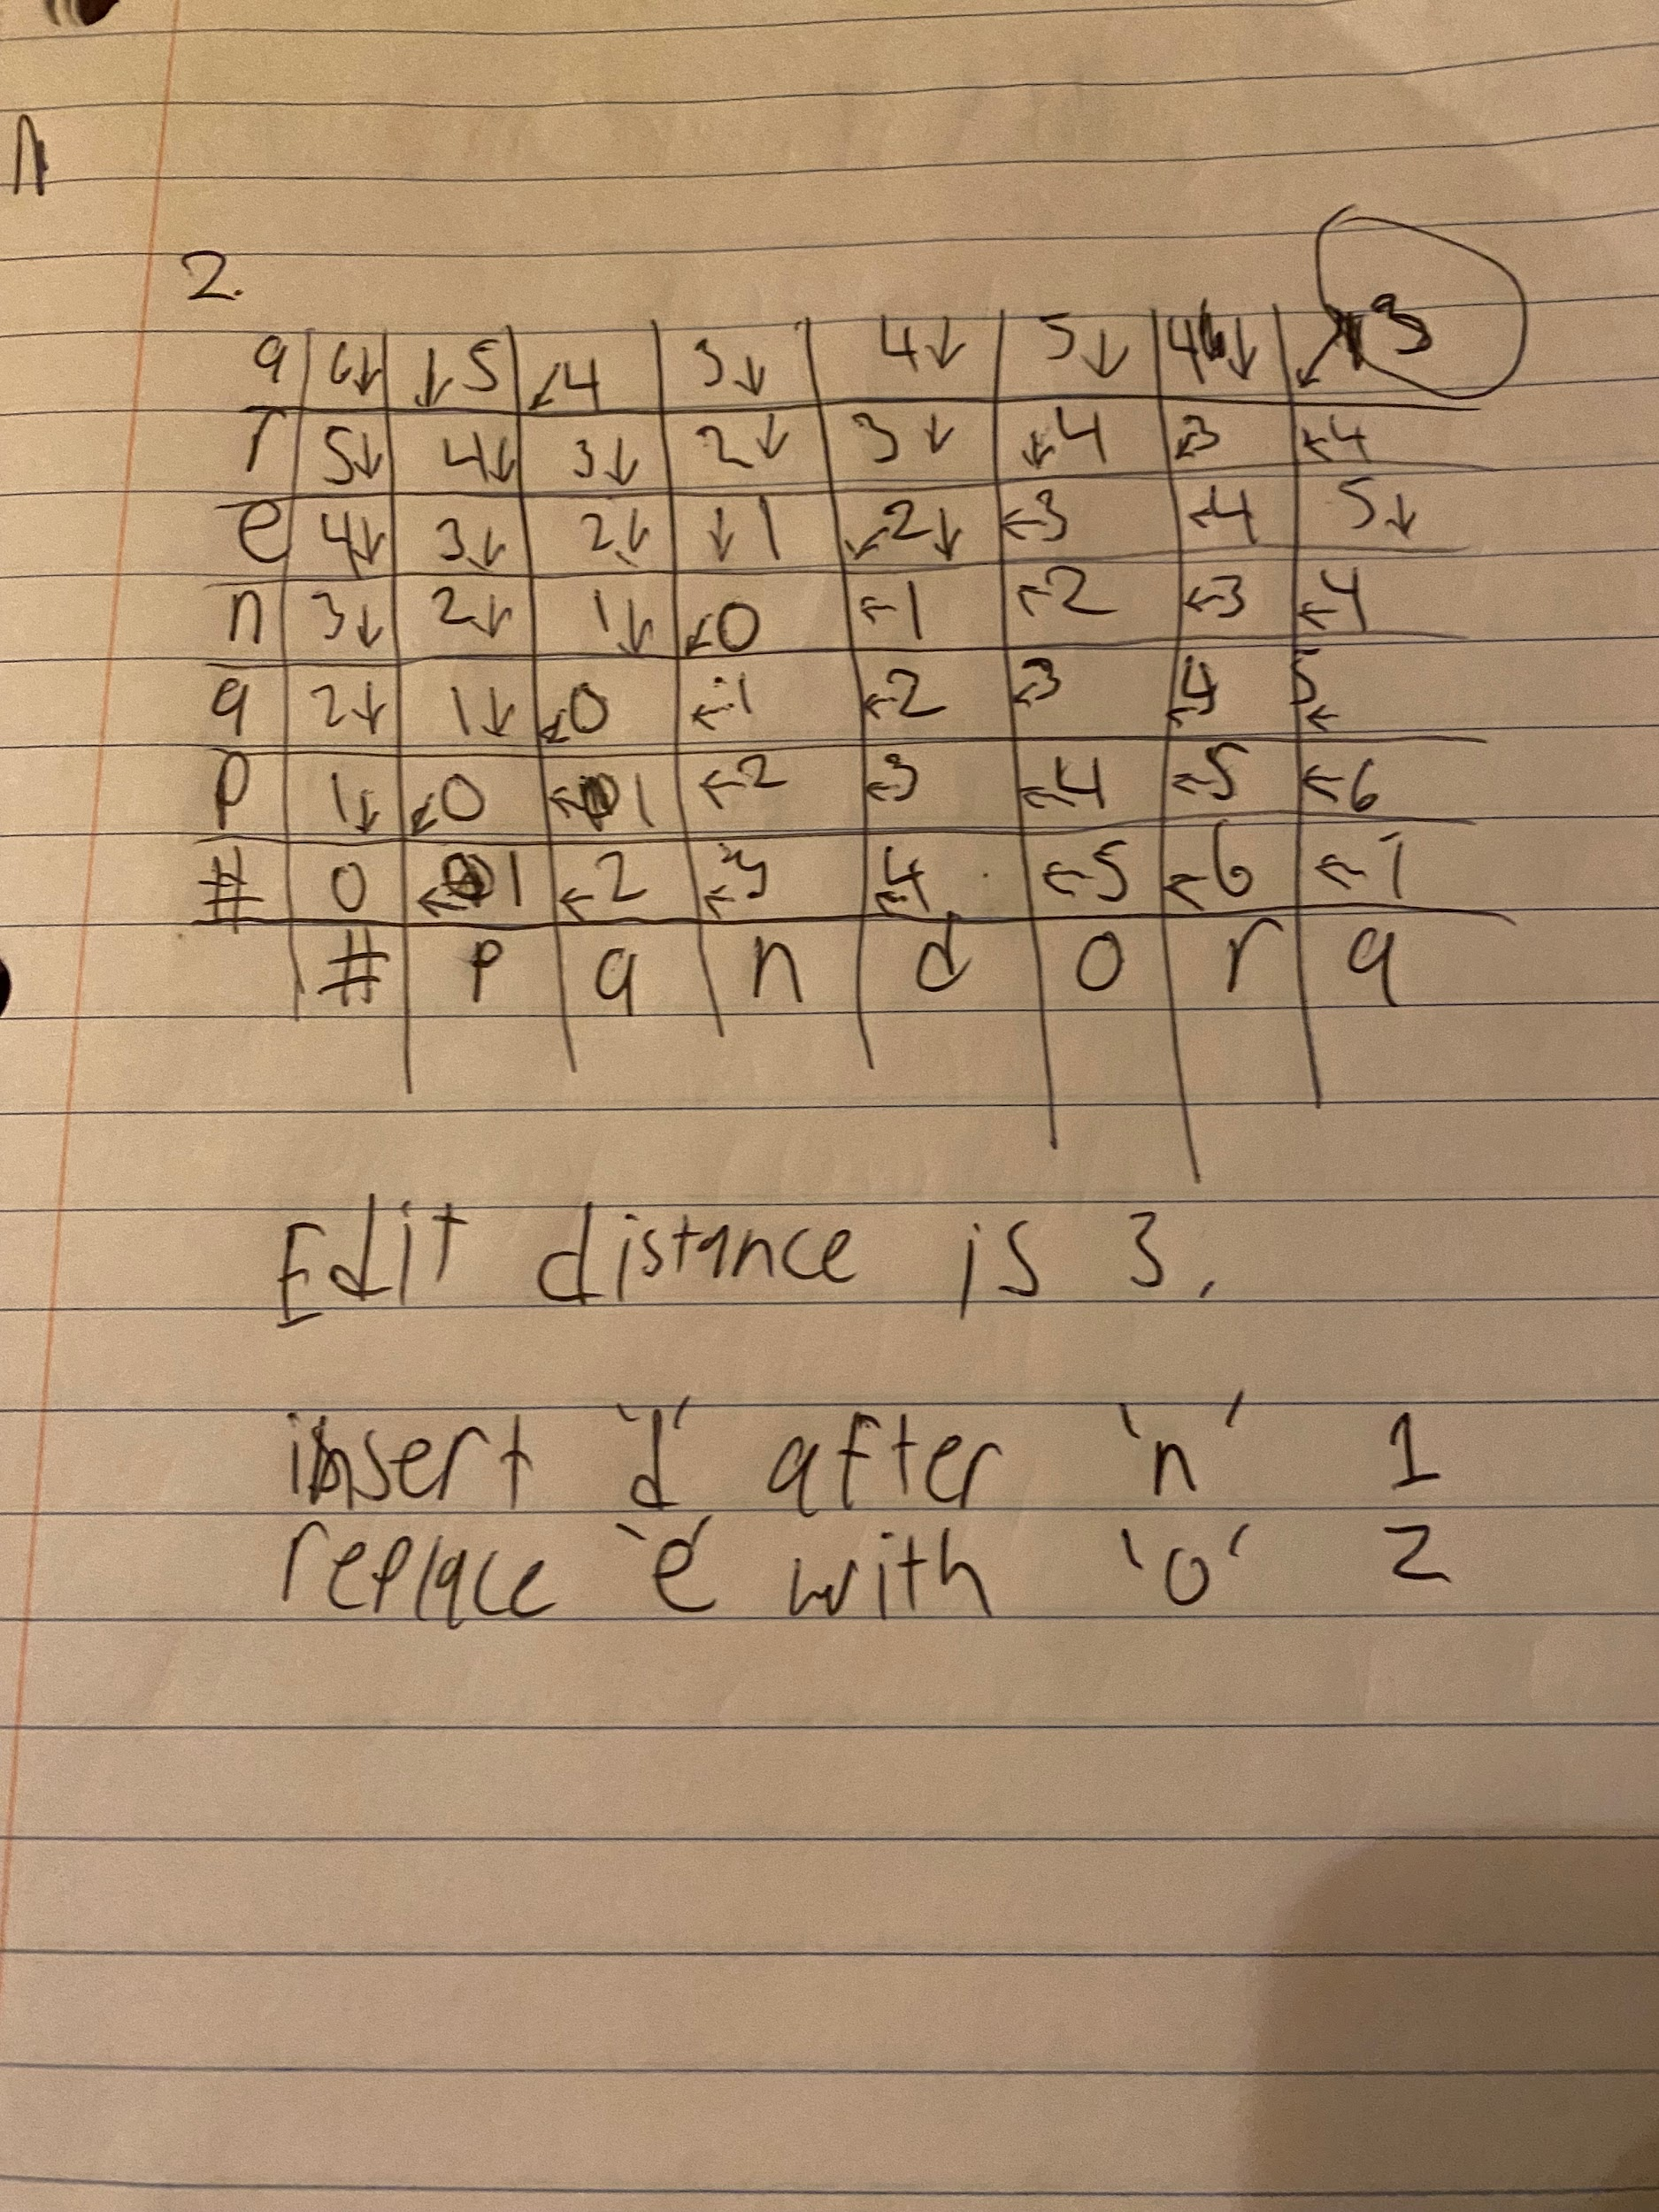 2.
a 6↓ ↓5 ↙4 3↓ 4↓ 5↓ 4↓ ↙3
r 5↓ 4↓ 3↓ 2↓ 3↓ ↙4 ↙3 ←4
e 4↓ 3↓ 2↓ ↓1 ↙2↓ ←3 ←4 5↓
n 3↓ 2↓ 1↓ ↙0 ←1 ←2 ←3 ←4
a 2↓ 1↓ ↙0 ←1 ←2 ←3 ←4 5←
p 1↓ ↙0 ←1 ←2 ←3 ←4 ←5 ←6
# 0 ←1 ←2 ←3 ←4 ←5 ←6 ←7
# p a n d o r a
Edit distance is 3.
insert 'd' after 'n' 1
replace 'e' with 'o' 2